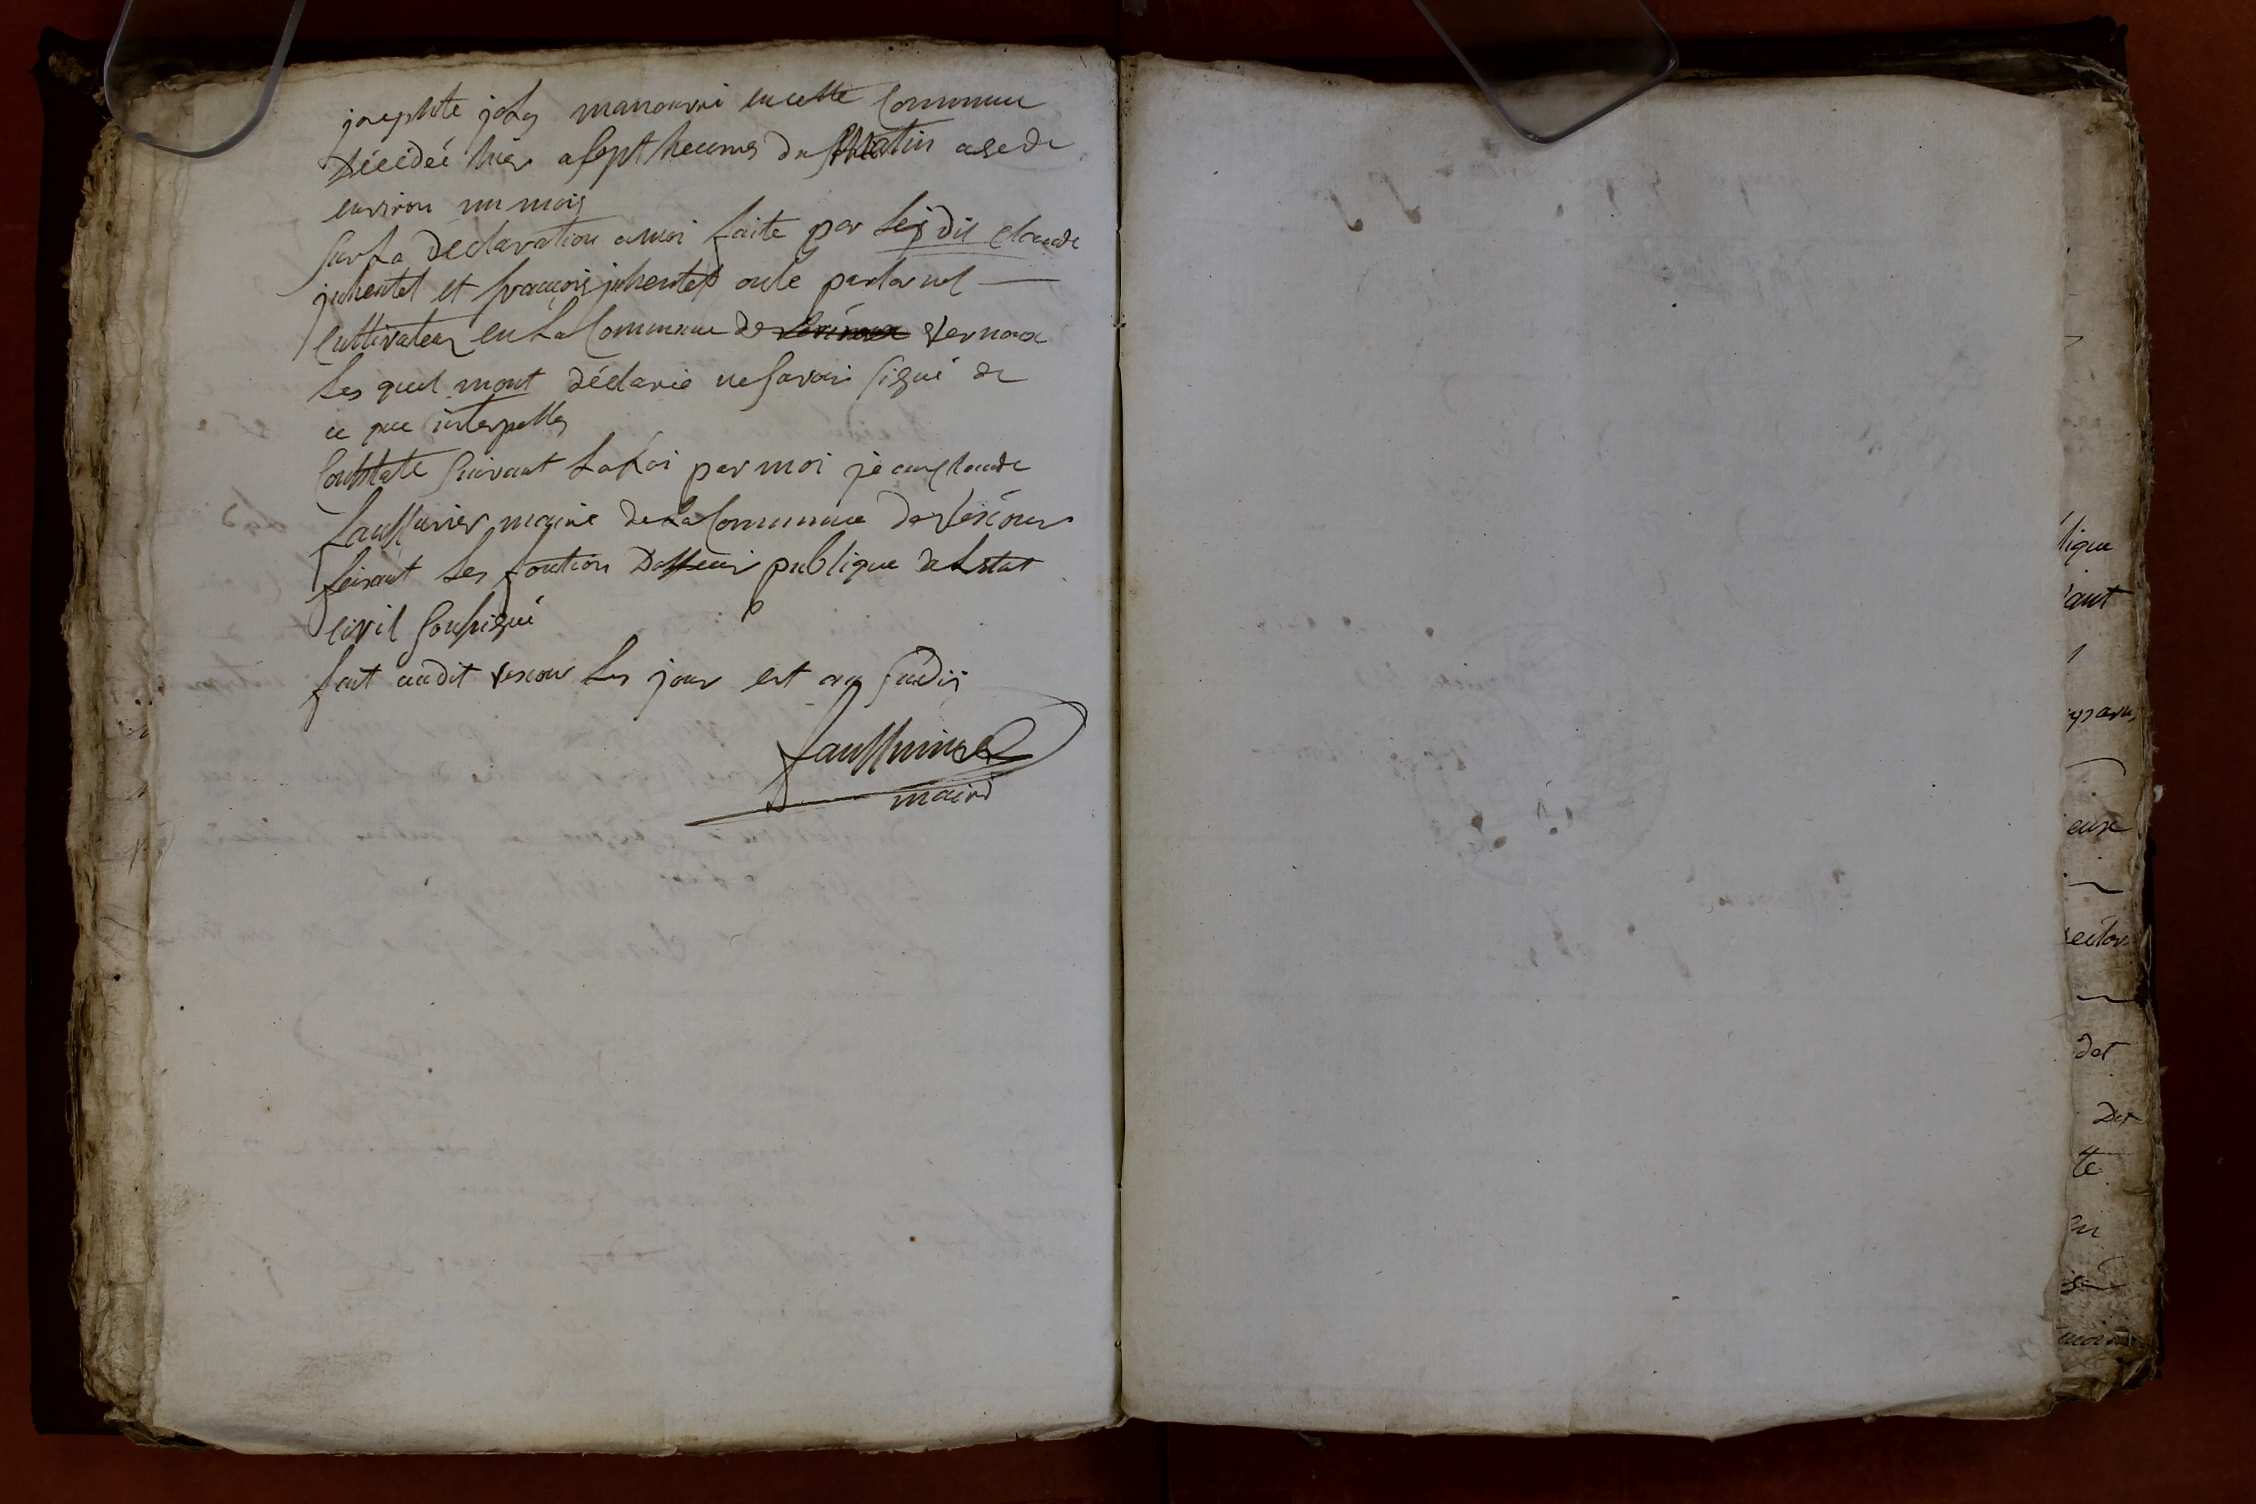 josephte joly manouvri en cette Commune
Décédeé hier a sept heures du Matin age de
environ un mois
sur La Déclaration a moi faite par Les dit claude
juhentet et francois juhentet oncle parternel
Cultivateur en La Commune de Vernoux
Les quel mont déclarie ne savoir signé de
ce que interpellés
Constate suivant La Loi par moi jean claude
maire de La Commune de Vescour
faisant Les fontion Doffecier publique de Letat
Civil sousigné
fait audit vescour Les jour est an sudis
maire
lique
ant
eux
dot
De
te